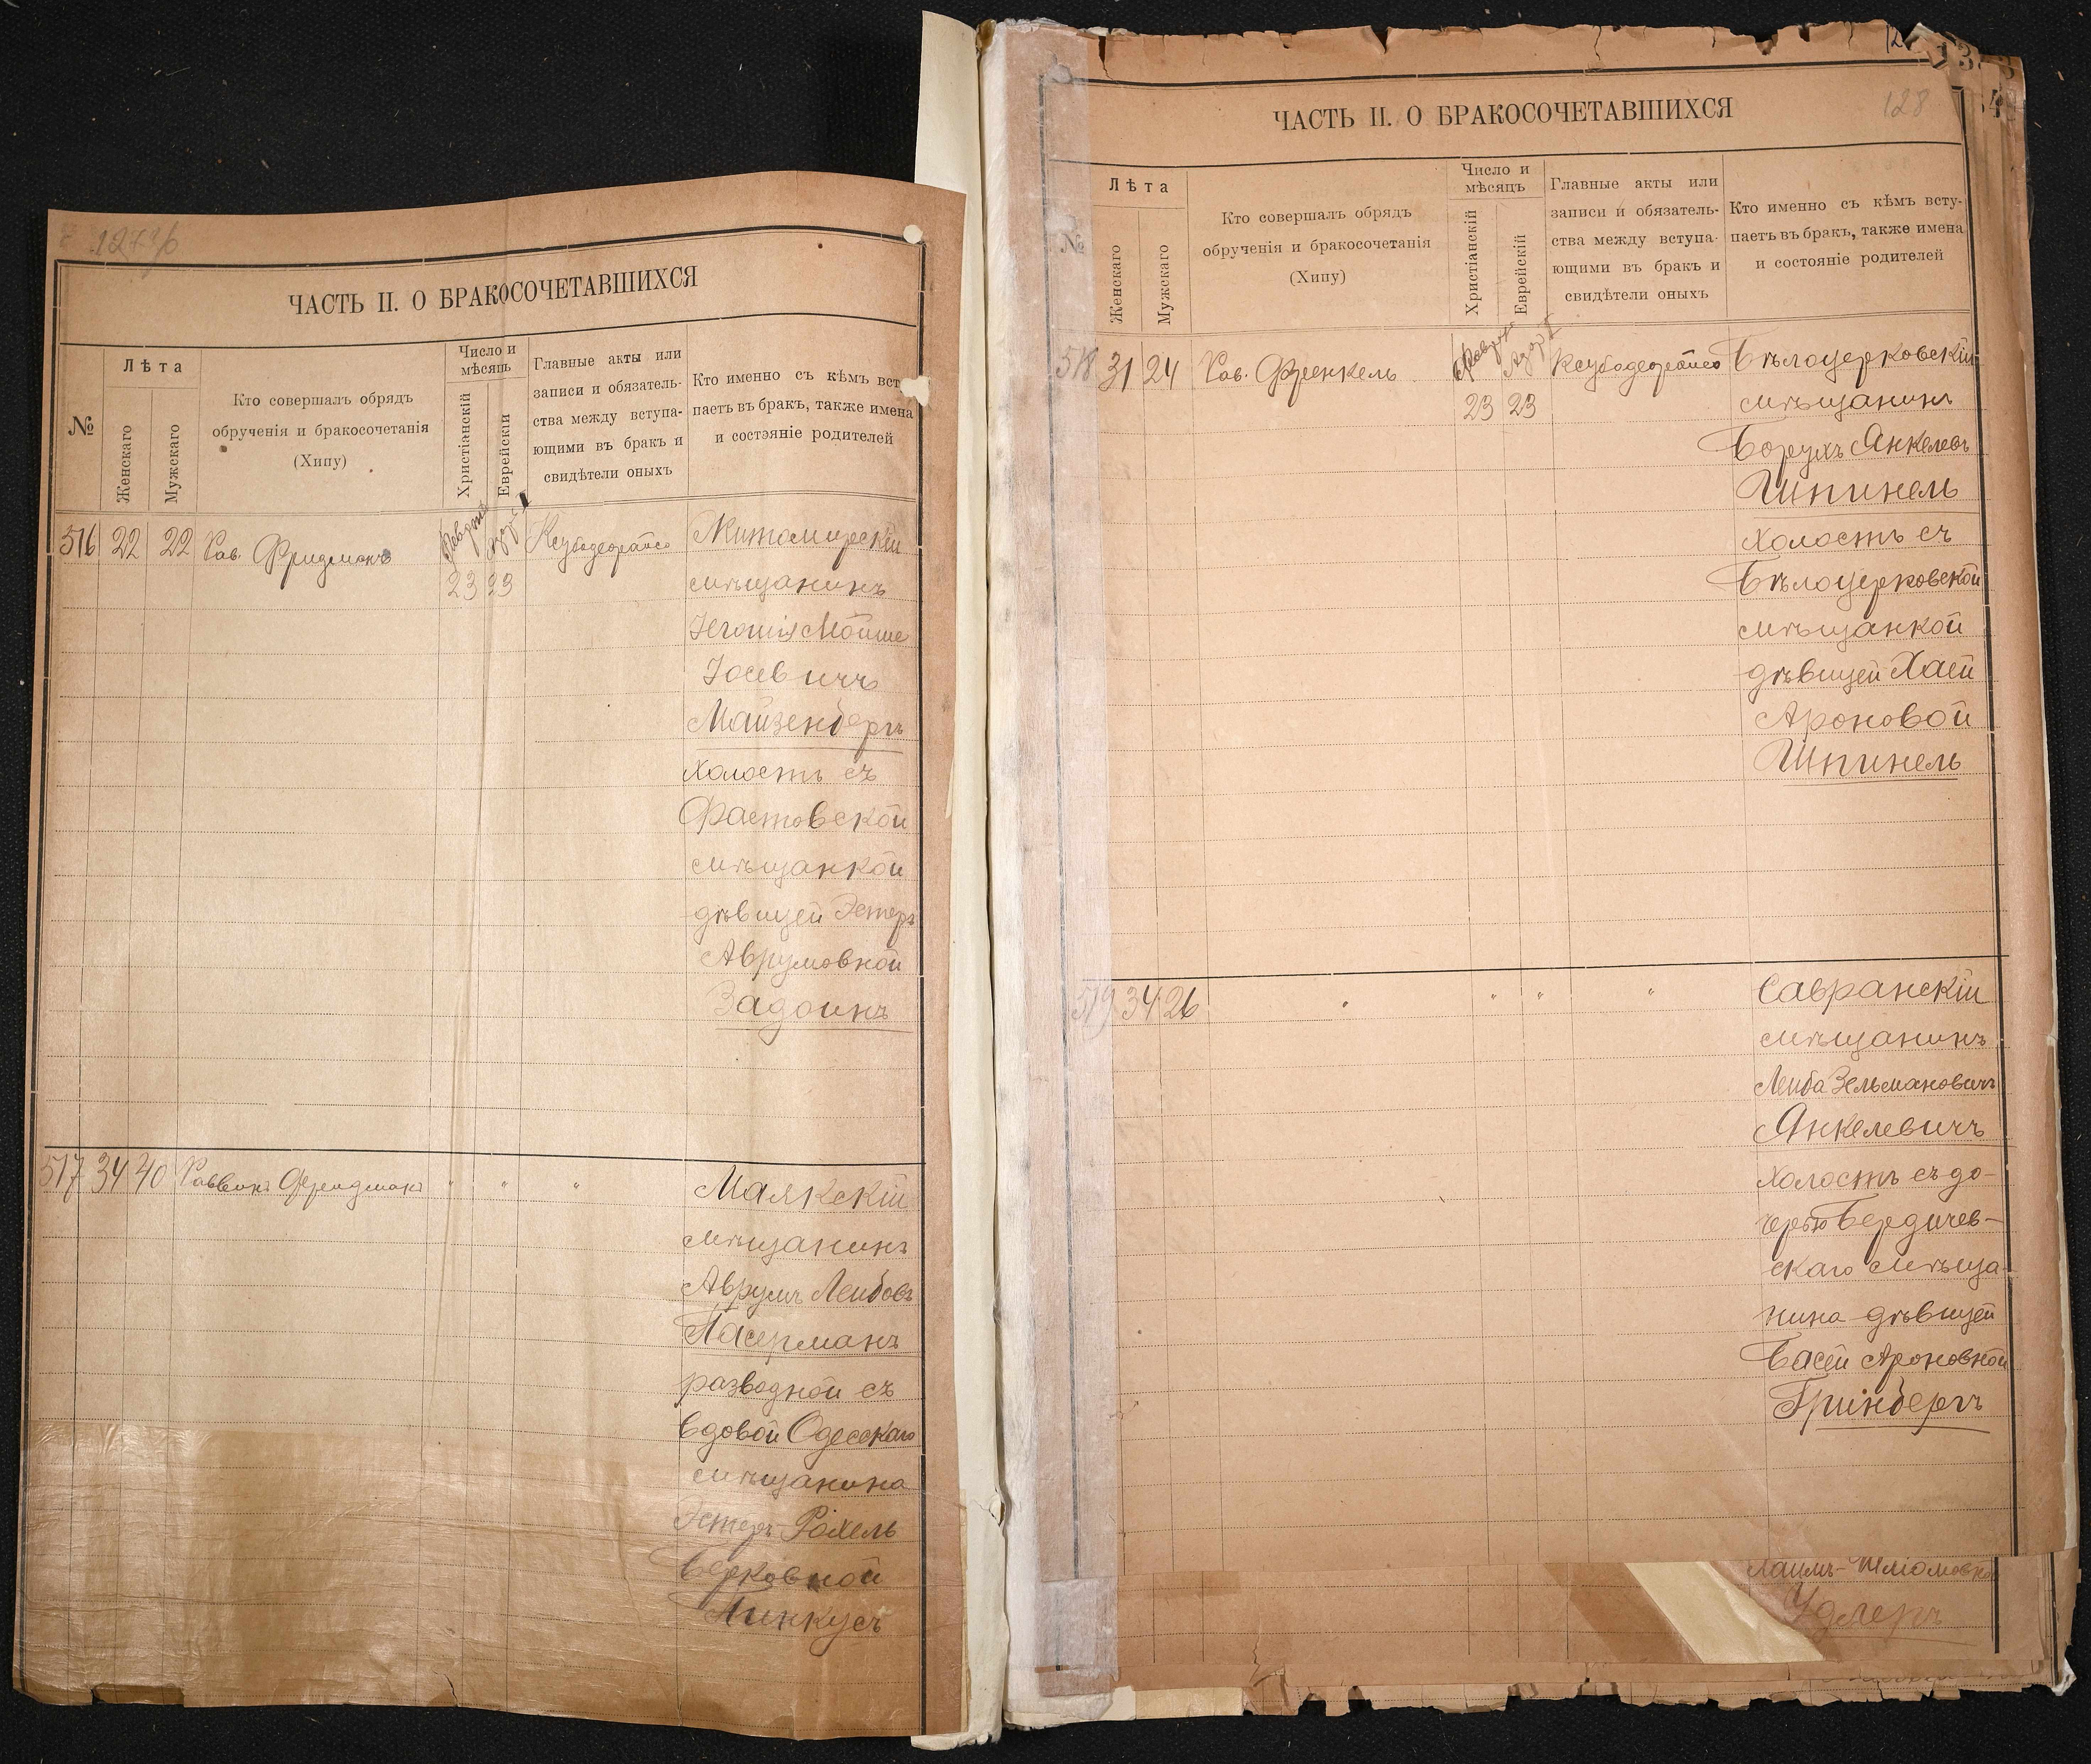 ЧАСТЬ II. О БРАКОСОЧЕТАВШИХСЯ
№
Лѣта
Женскаго
Мужскаго
Кто совершалъ обрядъ
обрученія и бракосочетанія
(Хипу)
Число и
мѣсяцъ
Христіанскій
Еврейскій
Главные акты или
записи и обязатель-
ства между вступа-
ющими въ бракъ и
свидѣтели оныхъ
Кто именно съ кѣмъ всту
паетъ въ бракъ, также имена
и состояніе родителей
516 22 22 Рав. Фридманъ
23 23
Житомирскій
мѣщанинъ
Мойше
Іосевичъ
Майзенбергъ
холостъ съ
Фастовской
мѣщанкой
дѣвицей Эстеръ
Аврумовной
Задоинъ
517 34 40 Раввинъ Фридманъ " " "
Маякскій
мѣщанинъ
Аврумъ Лейбовъ
Пасерманъ
разводной съ
вдовой Одесскаго
мѣщанина
Эстеръ-Рохель
Берковной
Минкусъ
128
ЧАСТЬ II. О БРАКОСОЧЕТАВШИХСЯ
№
Лѣта
Женскаго
Мужскаго
Кто совершалъ обрядъ
обрученія и бракосочетанія
(Хипу)
Число и
мѣсяцъ
Христіанскій
Еврейскій
Главные акты или
записи и обязатель-
ства между вступа-
ющими въ бракъ и
свидѣтели оныхъ
Кто именно съ кѣмъ всту-
паетъ въ бракъ, также имена
и состояніе родителей
518 31 24 Рав. Френкель
23 23
Бѣлоцерковскій
мѣщанинъ
Борухъ Янкелевъ
Шпинель
холостъ съ
Бѣлоцерковской
мѣщанкой
дѣвицей Хаей
Ароновой
Шпинель
519 34 26 " " " "
Савранскій
мѣщанинъ
Лейба Зельмановичъ
Янкелевичъ
холостъ съ до-
черью Бердичев-
скаго мѣща-
нина дѣвицей
Басей Ароновной
Грінбергъ
Удлеръ